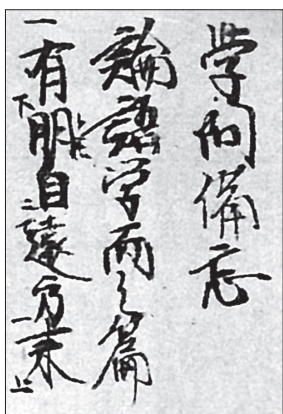 学問備忘
論語学而之篇
一有下朋自二遠方一来上